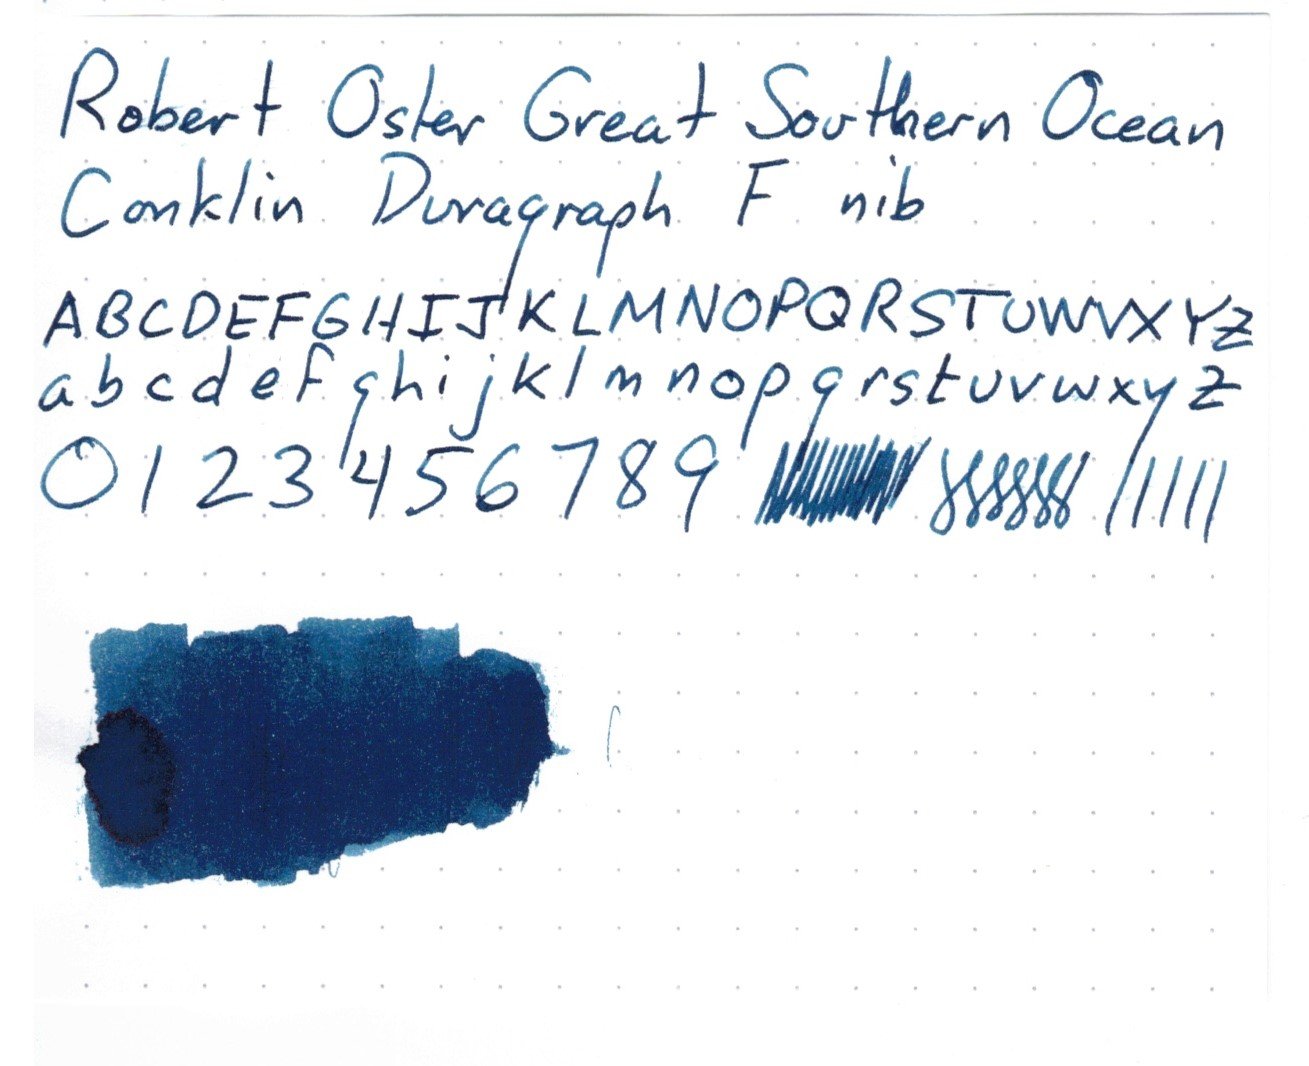 Robert Oster Great Southern Ocean
Conklin Duragraph F nib
ABCDEFGHIJKLMNOPQRSTUWVXYZ
abcdefghijklmnopqrstuvwxyz
0123456789